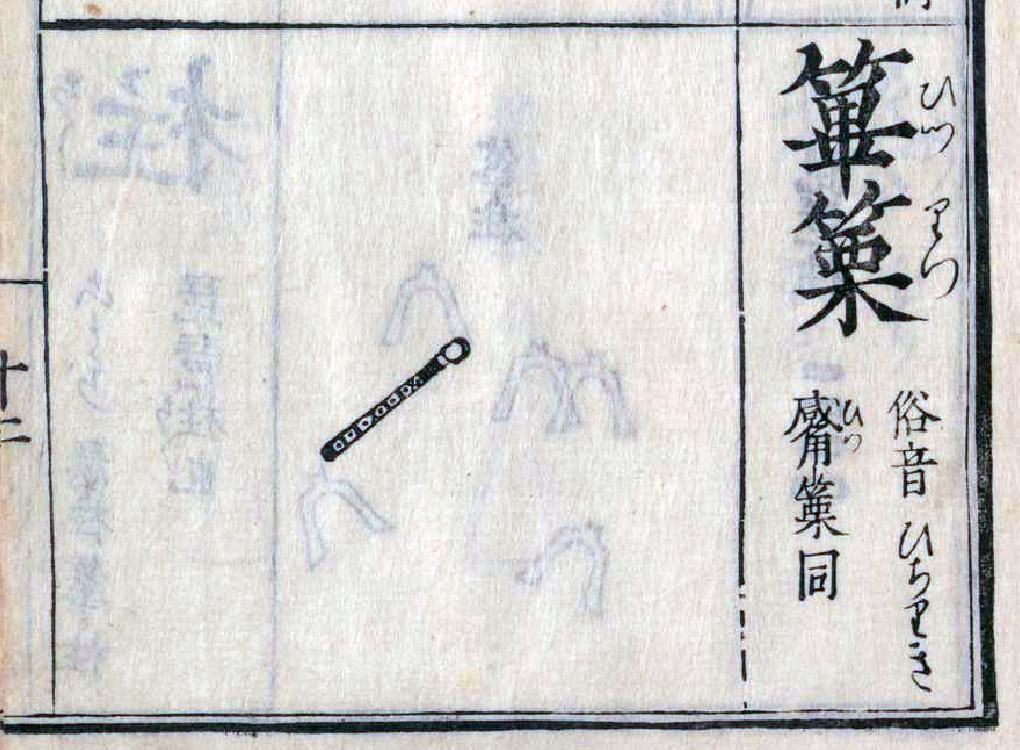 篳篥
ひつりつ
俗音ひちりき
觱篥同
ひつ
十二